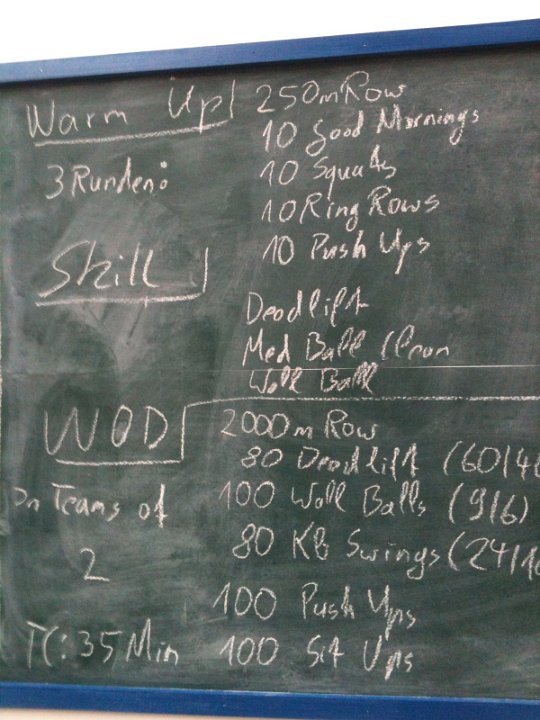 Warm Up 250m Row
10 Good Mornings
3 Runden: 10 Squats
10 Ring Rows
10 Push Ups
Skill
Deadlift
Med Ball Clean
Wall Ball
WOD 2000m Row
80 Deadlift (60/4
In Teams of 100 Wall Balls (9/6)
2 80 KB Swings (24/16
100 Push Ups
TC: 35 Min 100 Sit Ups